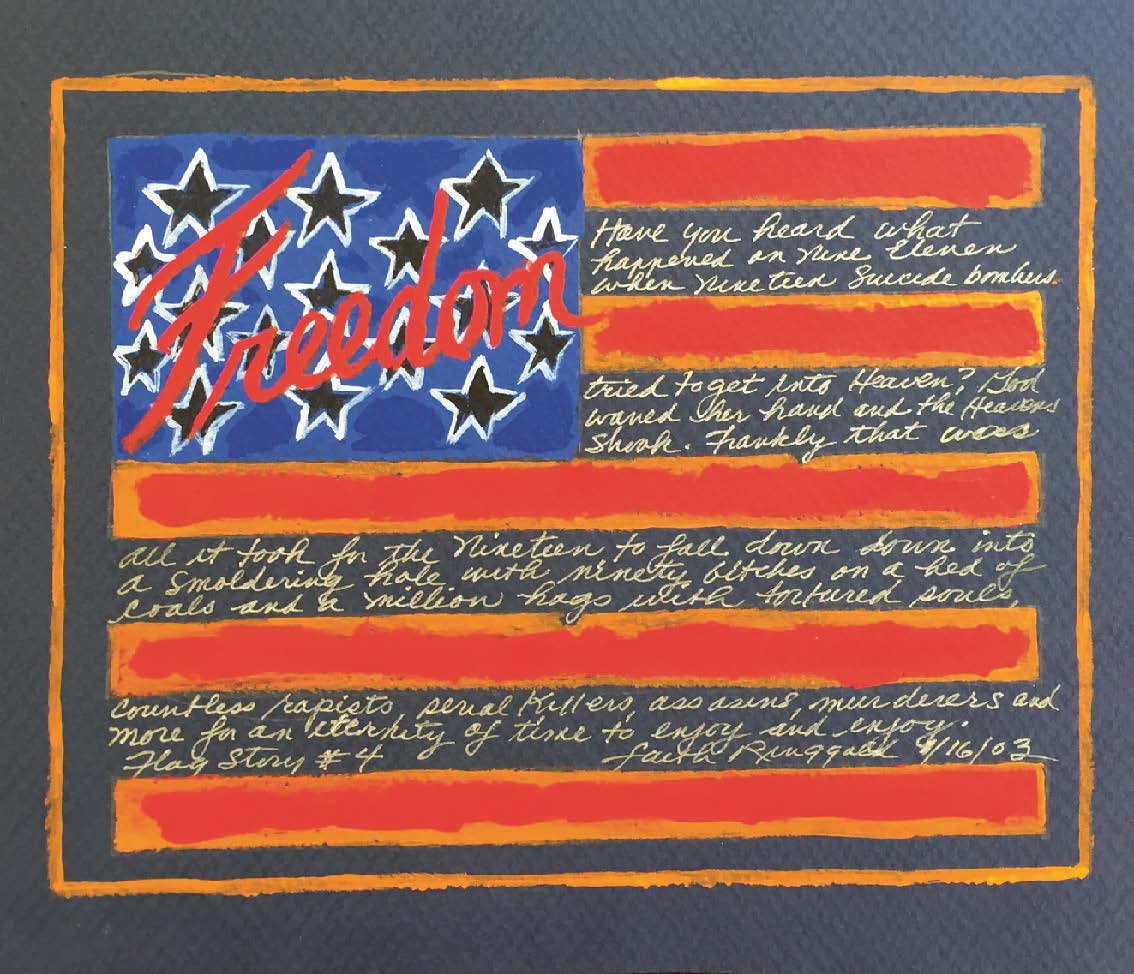 Freedom
Have you heard what
happened on Nine Eleven
when Nineteen Suicide bombers
tried to get into Heaven? God
waved her hand and the Heavens
shook. Frankly that was
all it took for the Nineteen to fall down down into
a smoldering hole with ninety bitches on a bed of
coals and a million hags with tortured souls,
Countless rapists, serial Killers, assasins, murderers and
more for an eternity of time to enjoy and enjoy.
Flag Story # 4 Faith Ringgold 9/16/03